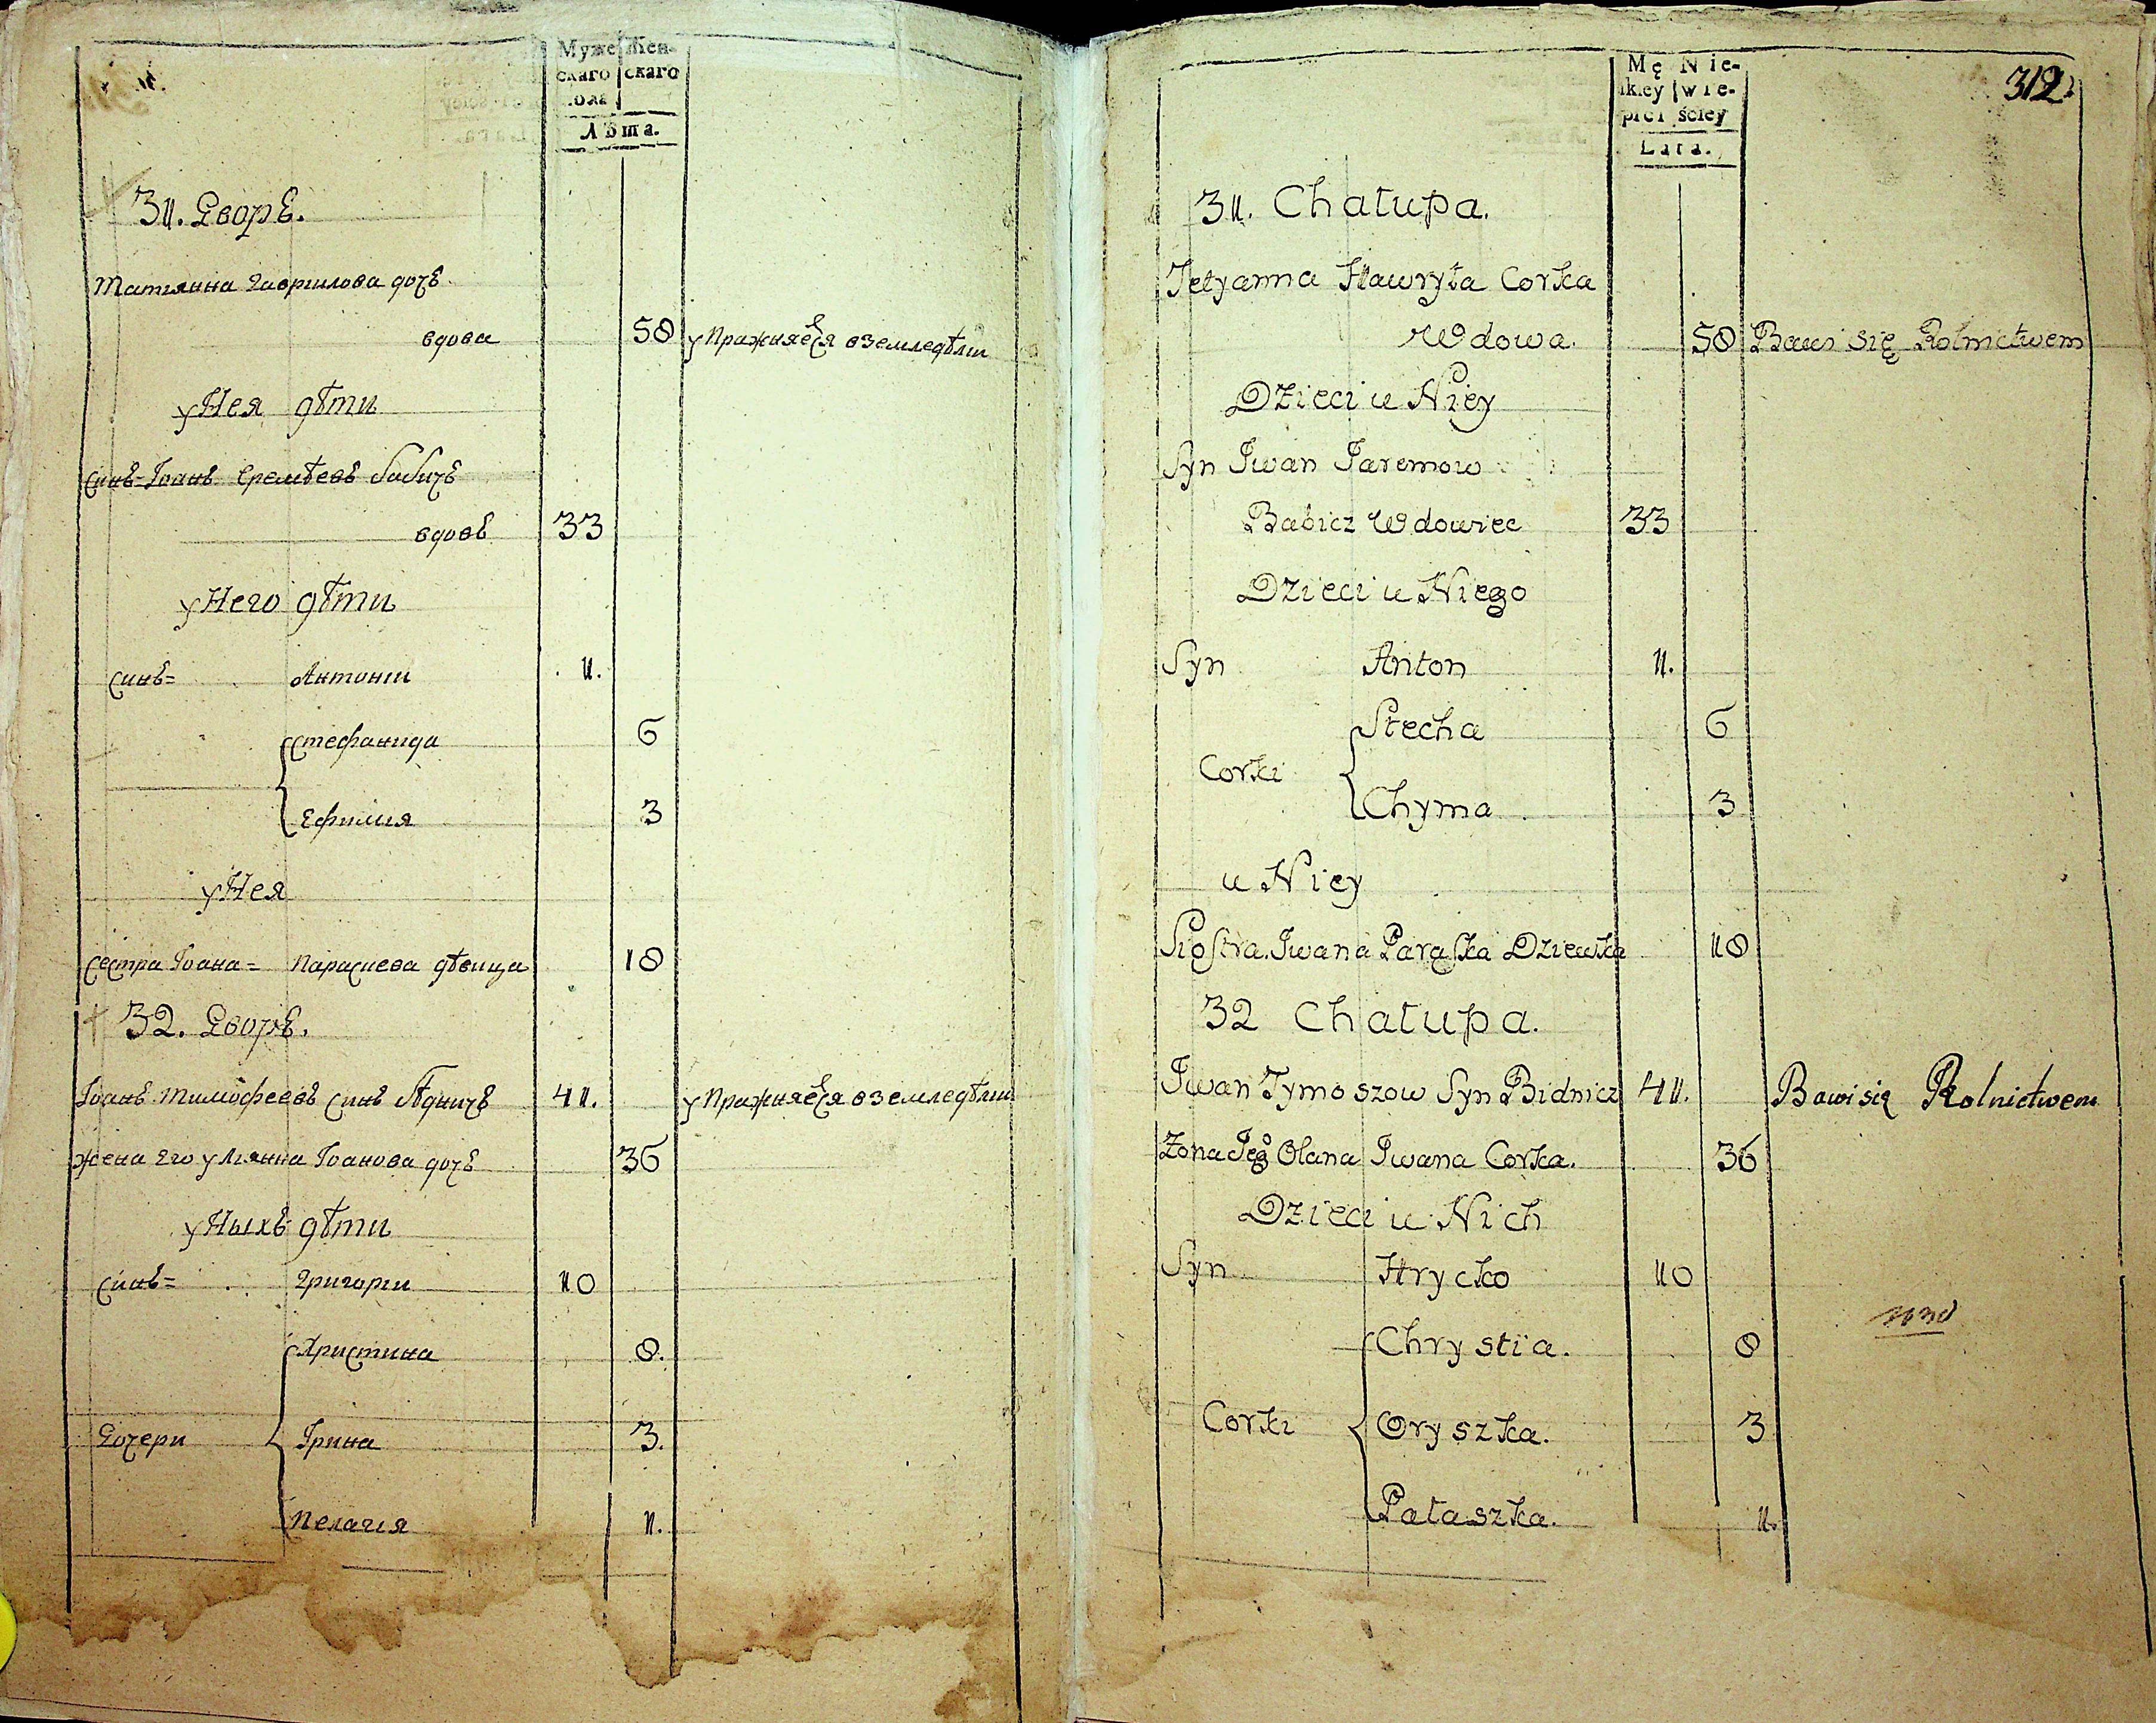 Муже Жен-
скаго скаго
пола
Лѣта.
31. Дворъ.
Татіянна Гаврилова дочъ
вдова 58 упражняется в земледѣліи
у Нея дѣти
синъ Іоанъ Еремѣевъ Бабичъ
вдовъ 33
у Него дѣти
синъ= Антоніи 11.
Стефанида 6
Ефимія 3
у Нея
сестра Іоана= Параскева дѣвица 18
32. Дворъ.
Іоанъ Тимофеевъ синъ Бѣдничъ 41. упражняется в земледѣліи
жена Его Улиянна Іоанова дочъ 36
у Ныхъ дѣти
синъ= Григории 10
Христина 8.
Дочери Ірина 3.
Пелагія 1.
312
Mę Nie-
skiey wie-
płci ściey
Lata.
31. Chałupa.
Tetyanna Hawryła Corka
Wdowa. 58 Bawi się Rolnictwem
Dzieci u Niey
Syn Iwan Jaremow
Babicz Wdowiec 33
Dzieci u Niego
Syn Anton 11.
Stecha 6
Corki
Chyma 3
u Niey
Siostra Iwana Paraska Dziewka 18
32 Chałupa.
Iwan Tymoszow Syn Bidnicz 41. Bawi się Rolnictwem
Żona Jego Olana Iwana Corka. 36
Dzieci u Nich
Syn Hrycko 10
Chrystia. 8
Corki Oryszka. 3
Pałaszka. 1.